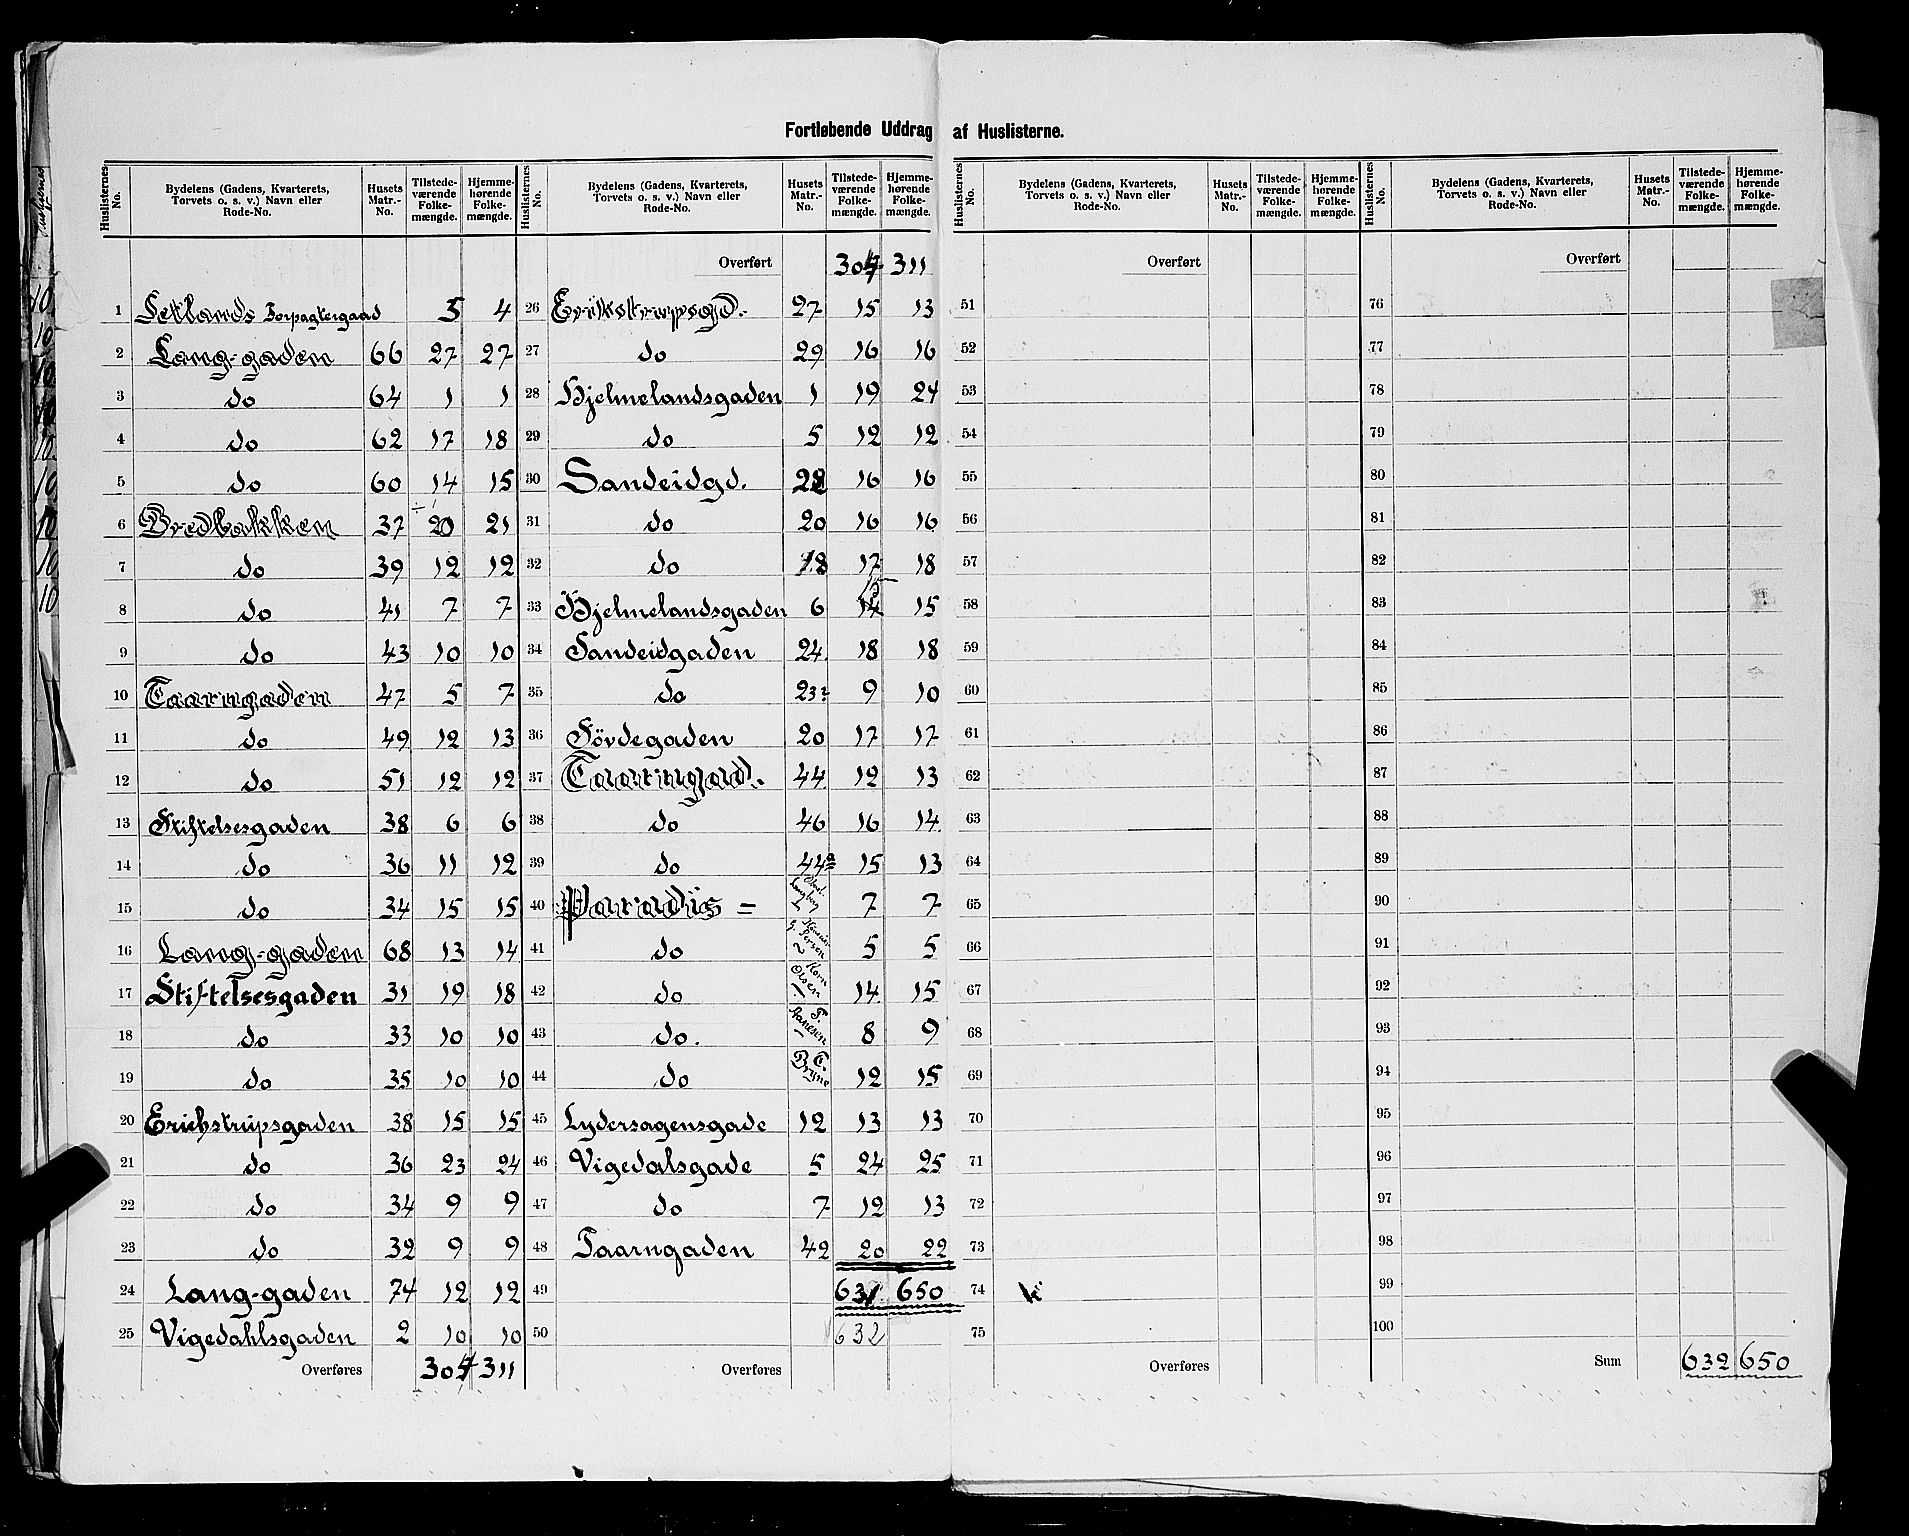 Fortløbende Uddrag af Huslisterne.
Huslisternes No. | Bydelens (Gadens, Kvarterets, Torvets o. s. v.) Navn eller Rode-No. | Husets Matr.-No. | Tilstede-værende Folke-mængde. | Hjemme-hørende Folke-mængde.
1 Setlands Forpagtergaard 5 4
2 Lang-gaden 66 27 27
3 do 64 1 1
4 do 62 17 18
5 do 60 14 15
6 Bredbakken 37 20 21
7 do 39 12 12
8 do 41 7 7
9 do 43 10 10
10 Taarngaden 47 5 7
11 do 49 12 13
12 do 51 12 12
13 Stiftelsesgaden 38 6 6
14 do 36 11 12
15 do 34 15 15
16 Lang-gaden 68 13 14
17 Stiftelsesgaden 31 19 18
18 do 33 10 10
19 do 35 10 10
20 Erichstrupsgaden 38 15 15
21 do 36 23 24
22 do 34 9 9
23 do 32 9 9
24 Lang-gaden 74 12 12
25 Vigedahlsgaden 2 10 10
Overføres 304 311
Huslisternes No. | Bydelens (Gadens, Kvarterets, Torvets o. s. v.) Navn eller Rode-No. | Husets Matr.-No. | Tilstede-værende Folke-mængde. | Hjemme-hørende Folke-mængde.
Overført 304 311
26 Erikstrupsgd. 27 15 13
27 do 29 16 16
28 Hjelmelandsgaden 1 19 24
29 do 5 12 12
30 Sandeidgd. 22 16 16
31 do 20 16 16
32 do 18 17 18
33 Hjelmelandsgaden 6 14 15 15
34 Sandeidgaden 24. 18 18
35 do 23 9 10
36 Sövdegaden 20 17 17
37 Taarngad. 44. 12 13
38 do 46 16 14.
39 do 44a 15 13
40 Paradiis = 7 7
41 do 5 5
42 do Korn. Olsen 14 15
43 do. 8 9
44 do T. Bryne 12 15
45 Lydersagensgade 12 13 13
46 Vigedalsgade 5 24 25
47 do 7 12 13
48 Taarngaden 42 20 22
49 631 650
50 632
Overføres
Huslisternes No. | Bydelens (Gadens, Kvarterets, Torvets o. s. v.) Navn eller Rode-No. | Husets Matr.-No. | Tilstede-værende Folke-mængde. | Hjemme-hørende Folke-mængde.
Overført
51
52
53
54
55
56
57
58
59
60
61
62
63
64
65
66
67
68
69
70
71
72
73
74
75
Overføres
Huslisternes No. | Bydelens (Gadens, Kvarterets, Torvets o. s. v.) Navn eller Rode-No. | Husets Matr.-No. | Tilstede-værende Folke-mængde. | Hjemme-hørende Folke-mængde.
Overført
76
77
78
79
80
81
82
83
84
85
86
87
88
89
90
91
92
93
94
95
96
97
98
99
100
Sum 632 650